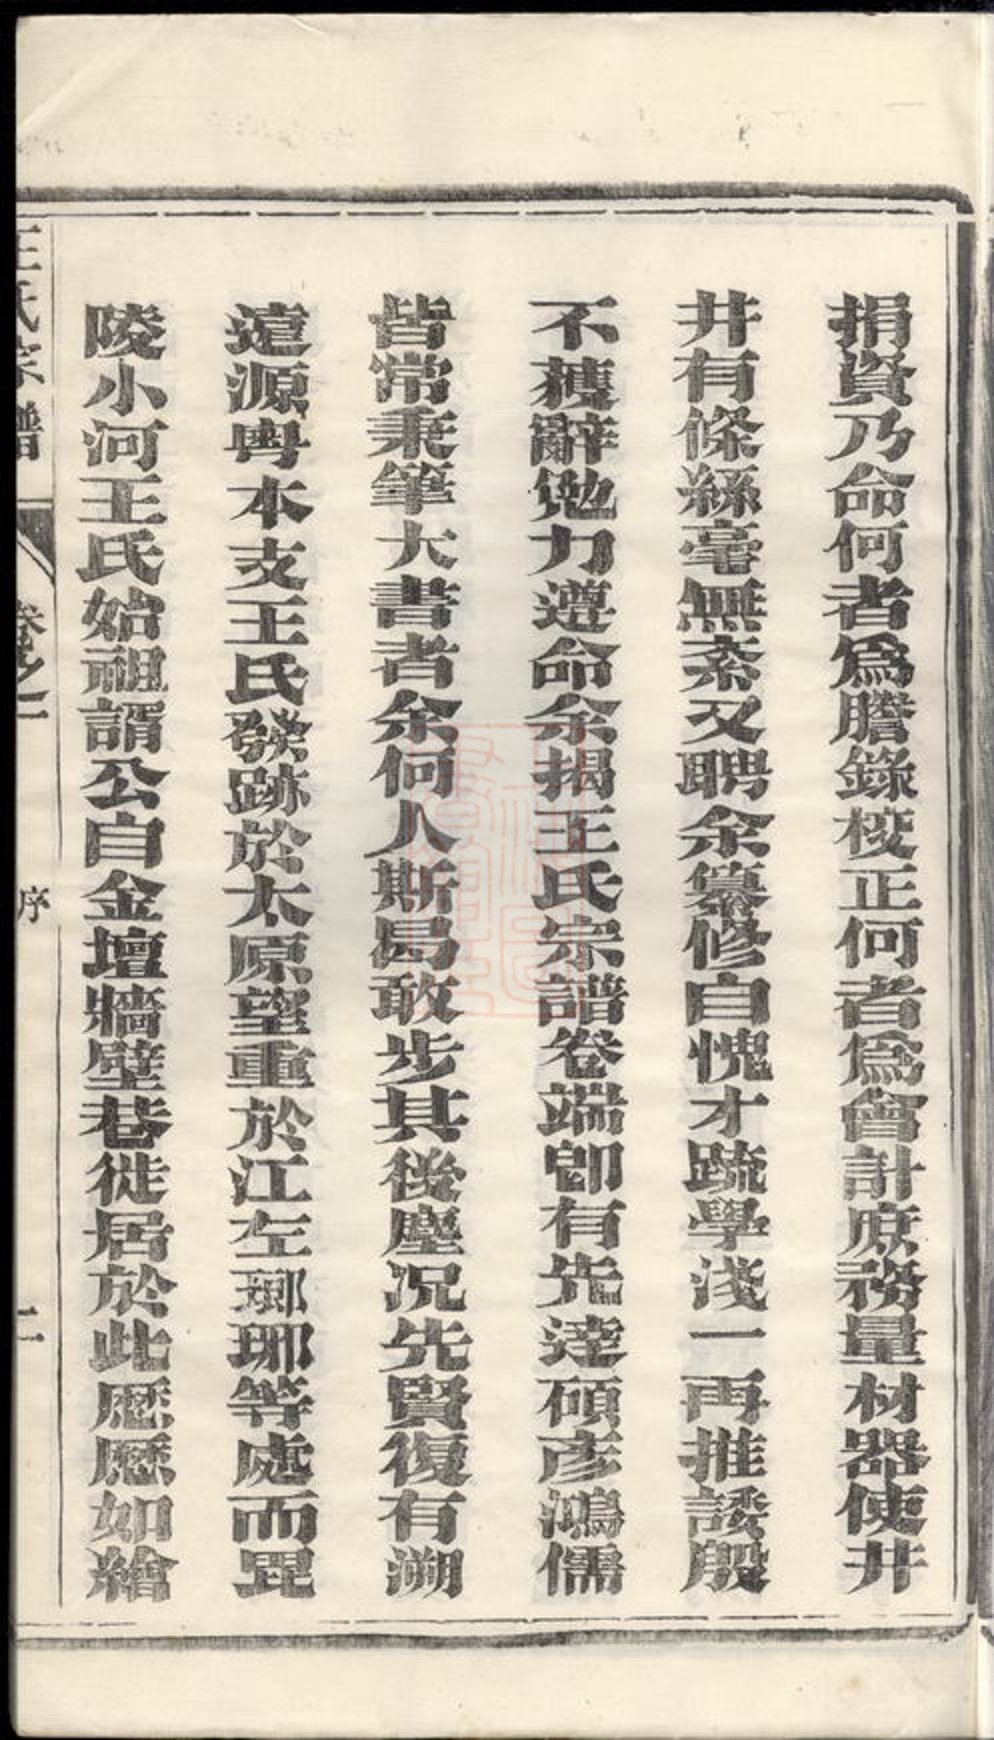 捐資乃命何者爲謄錄校正何者爲會計庶務量材器使井
井有條絲毫無紊又聘余纂修自愧才疏學淺一再推諉殷
不獲辭勉力遵命余揭王氏宗譜卷端卽有先達碩彥鴻儒
皆常秉筆大書者余何人斯曷敢步其後塵况先賢復有溯
遠源粤本支王氏發跡於太原望重於江左瑯琊等處而毘
陵小河王氏始祖諝公自金壇牆壁巷徙居於此歷歷如繪
王氏宗譜 卷之一 序 二